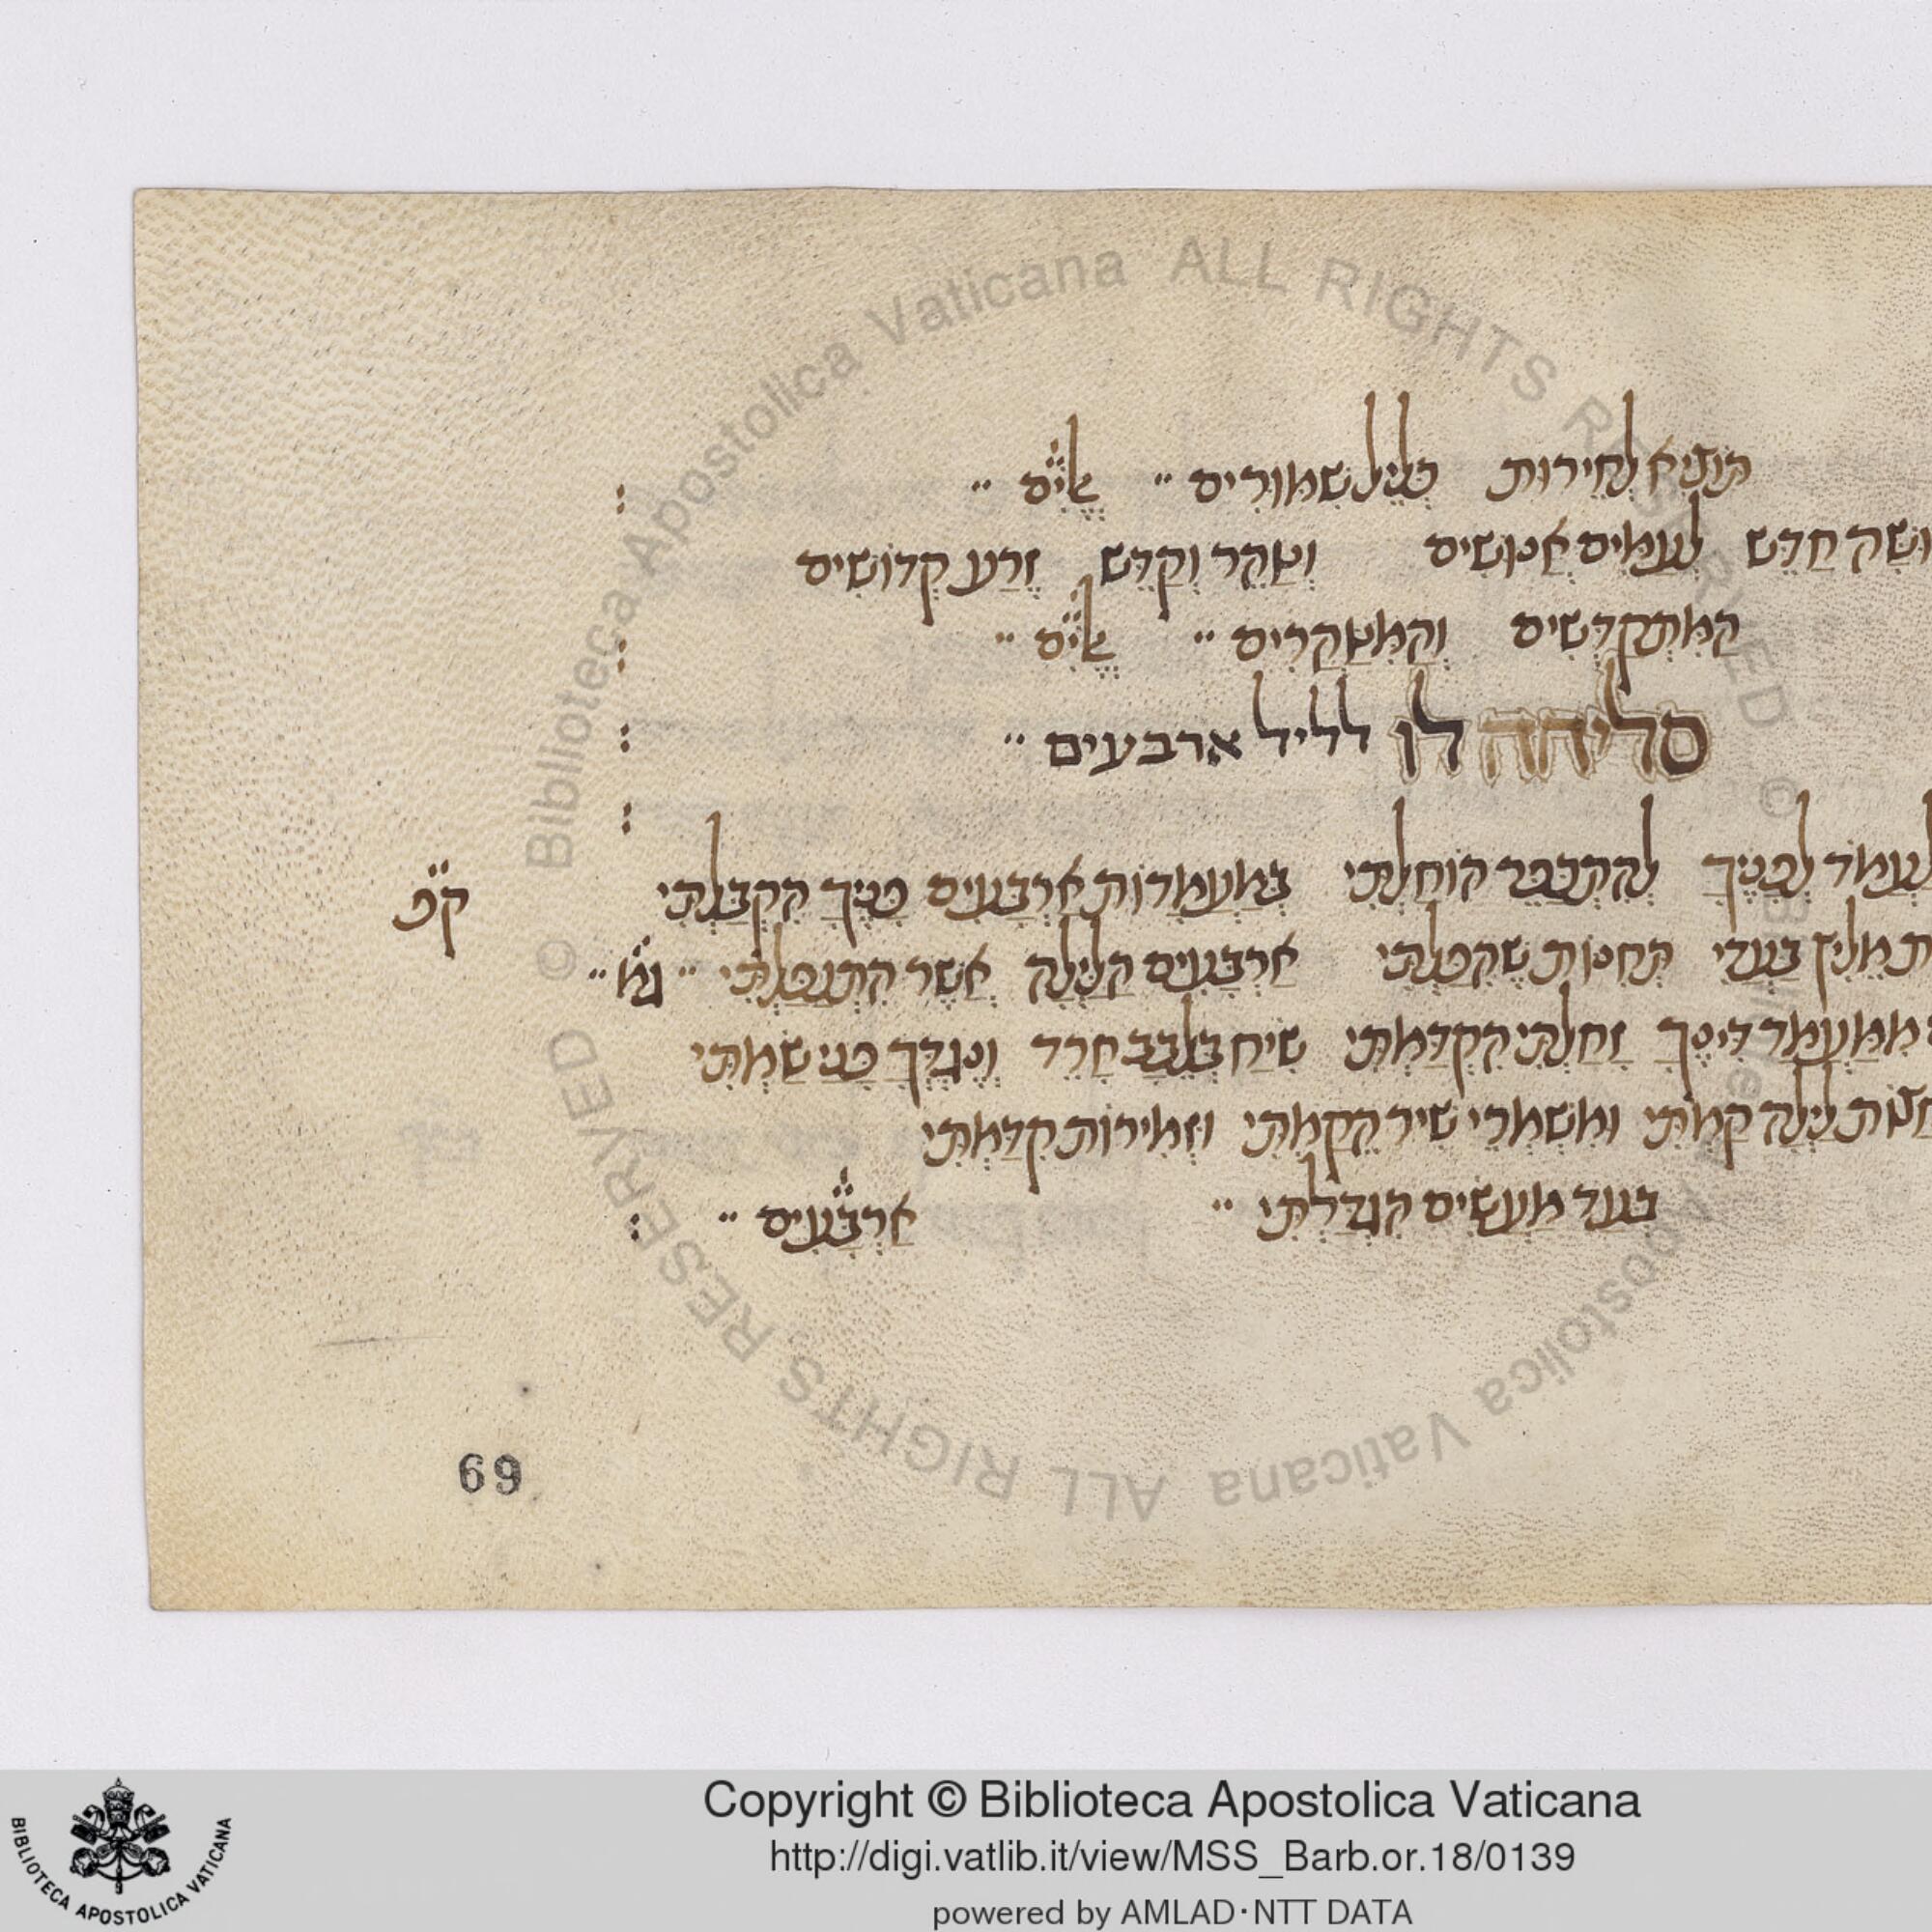 תוציא לחירות כליל שמורים ״ אל״ים ״
חדש לעמים אנושים וטהר וקדש זרע קדושים
המתקדשים והמטהרים ״ אל״ים ״
סליחה לו ללילי ארבעים ״
לעמוד לפניך להתכפר הוחלתי במעמדות ארבעים פניך הקבלתי
ק״פ
מליץ בעדי ארבעים הלילה אשר התנפלתי ״
ממעמד זחלתי הקדמתי שיח בלבב חרד ונגדך פני שמתי
לילה קמתי ומשמרי שיר הקמתי וזמירות קדמתי
בעד מעשים הגדלתי ״ ארב״עים ״
69
Biblioteca Apostolica Vaticana ALL RIGHTS RESERVED ©
Biblioteca Apostolica Vaticana ALL RIGHTS RESERVED ©
Copyright © Biblioteca Apostolica Vaticana
http://digi.vatlib.it/view/MSS_Barb.or.18/0139
powered by AMLAD·NTT DATA
BIBLIOTECA APOSTOLICA VATICANA